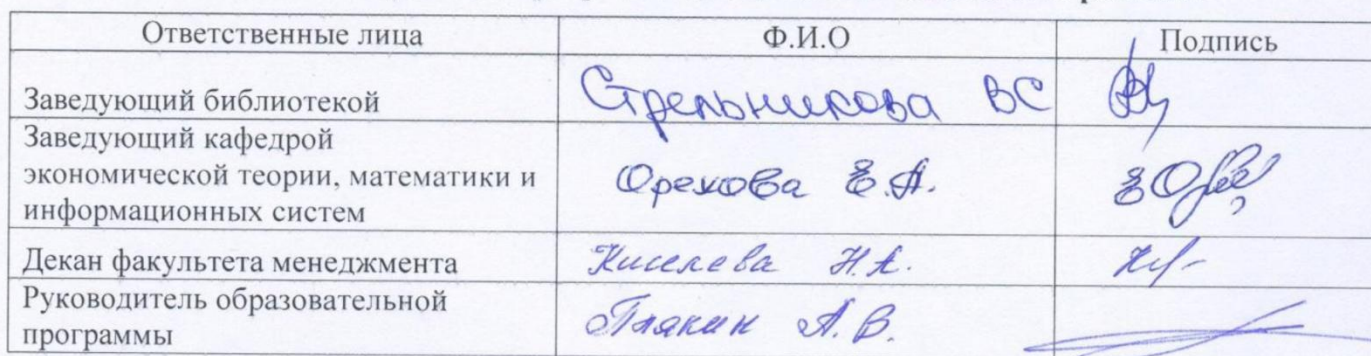 Ответственные лица Ф.И.О Подпись
Заведующий библиотекой Стрельникова ВС
Заведующий кафедрой
экономической теории, математики и Орехова Е.А.
информационных систем
Декан факультета менеджмента Киселева Н.А.
Руководитель образовательной
программы Плякин А.В.